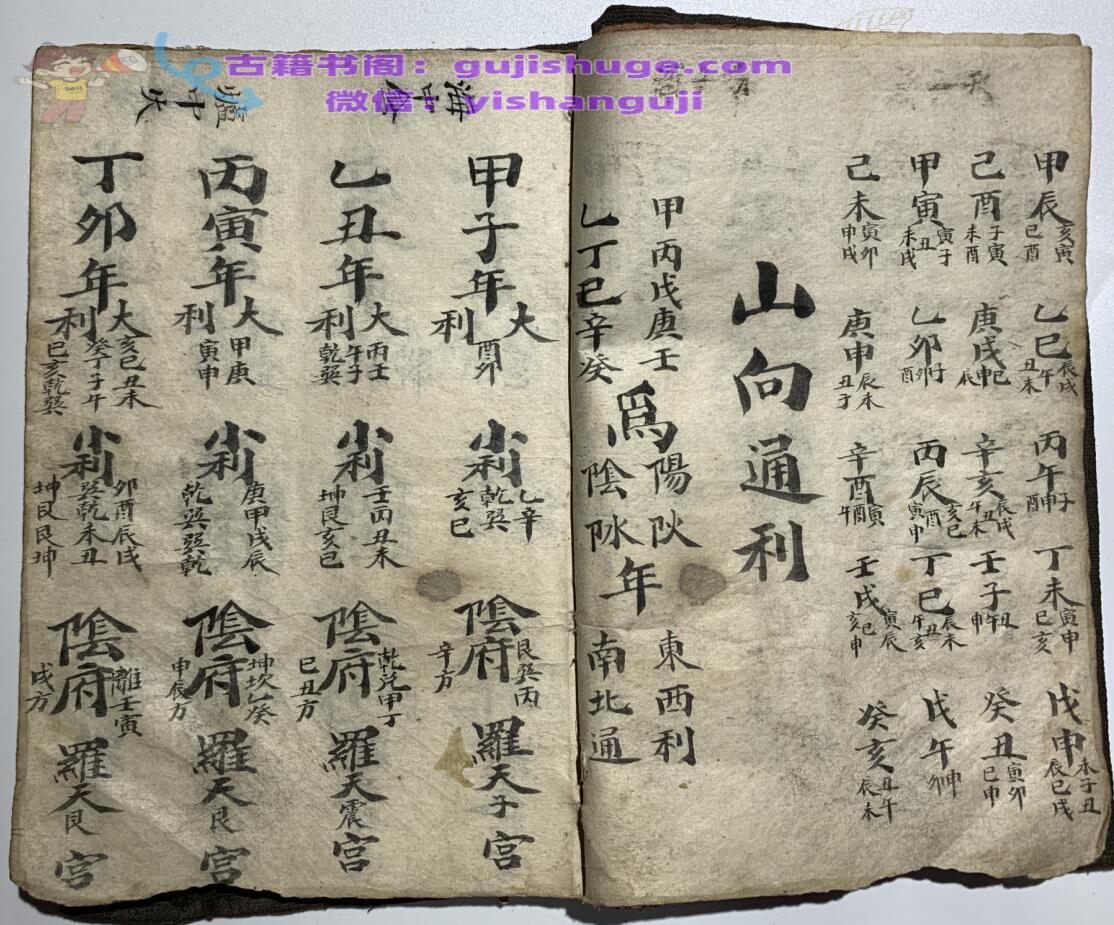 古籍书阁：gujishuge.com
微信：yishanguji
甲辰 亥寅 巳酉
乙巳 辰戌 午 丑未
丙午 子 申 酉
丁未 寅申 巳亥
戊申 未子丑 辰巳戌
己酉 子寅 未酉
庚戌 巳 申 辰
辛亥 辰戌 丑 午未
壬子 丑 午 申
癸丑 寅卯 巳申
甲寅 寅子 丑 未戌
乙卯 子 卯 酉
丙辰 亥巳 酉 寅申
丁巳 辰未 丑 午亥
戊午 申 卯
己未 寅卯 申戌
庚申 辰未 丑子
辛酉 寅 酉 午
壬戌 寅辰 巳 亥申
癸亥 丑午 辰未
山向通利
甲丙戊庚壬
乙丁巳辛癸
爲
陽
陰
年
東西利
南北通
海中金
甲子年 大利 酉卯
小利 乙辛 乾巽 亥巳
陰府 艮巽丙 辛方
羅天子宮
乙丑年 大利 丙壬 午子 乾巽
小利 壬丙丑未 坤艮亥巳
陰府 乾兌甲丁 巳丑方
羅天震宮
爐中火
丙寅年 大利 甲庚 寅申
小利 庚甲戌辰 乾巽巽乾
陰府 坤坎乙癸 申辰方
羅天艮宮
丁卯年 大利 亥巳丑未 癸丁子午 巳亥乾巽
小利 卯酉辰戌 巽乾未丑 坤艮艮坤
陰府 離壬寅 戌方
羅天艮宮